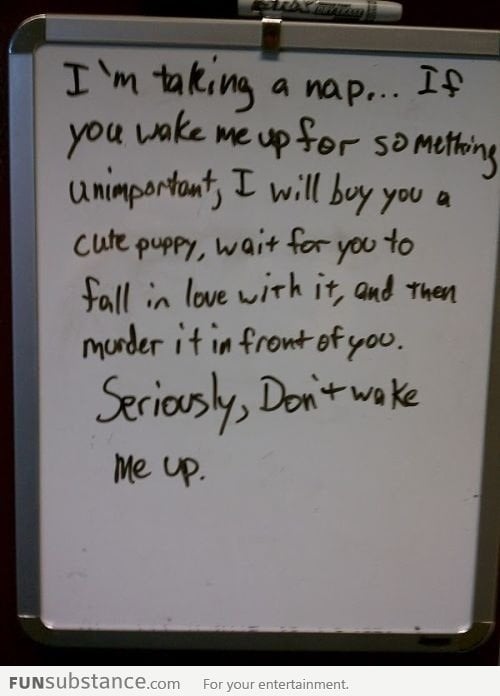 I'm taking a nap... If
you wake me up for something
unimportant, I will buy you a
cute puppy, wait for you to
fall in love with it, and then
murder it in front of you.
Seriously, Don't wake
me up.
FUNsubstance.com For your entertainment.